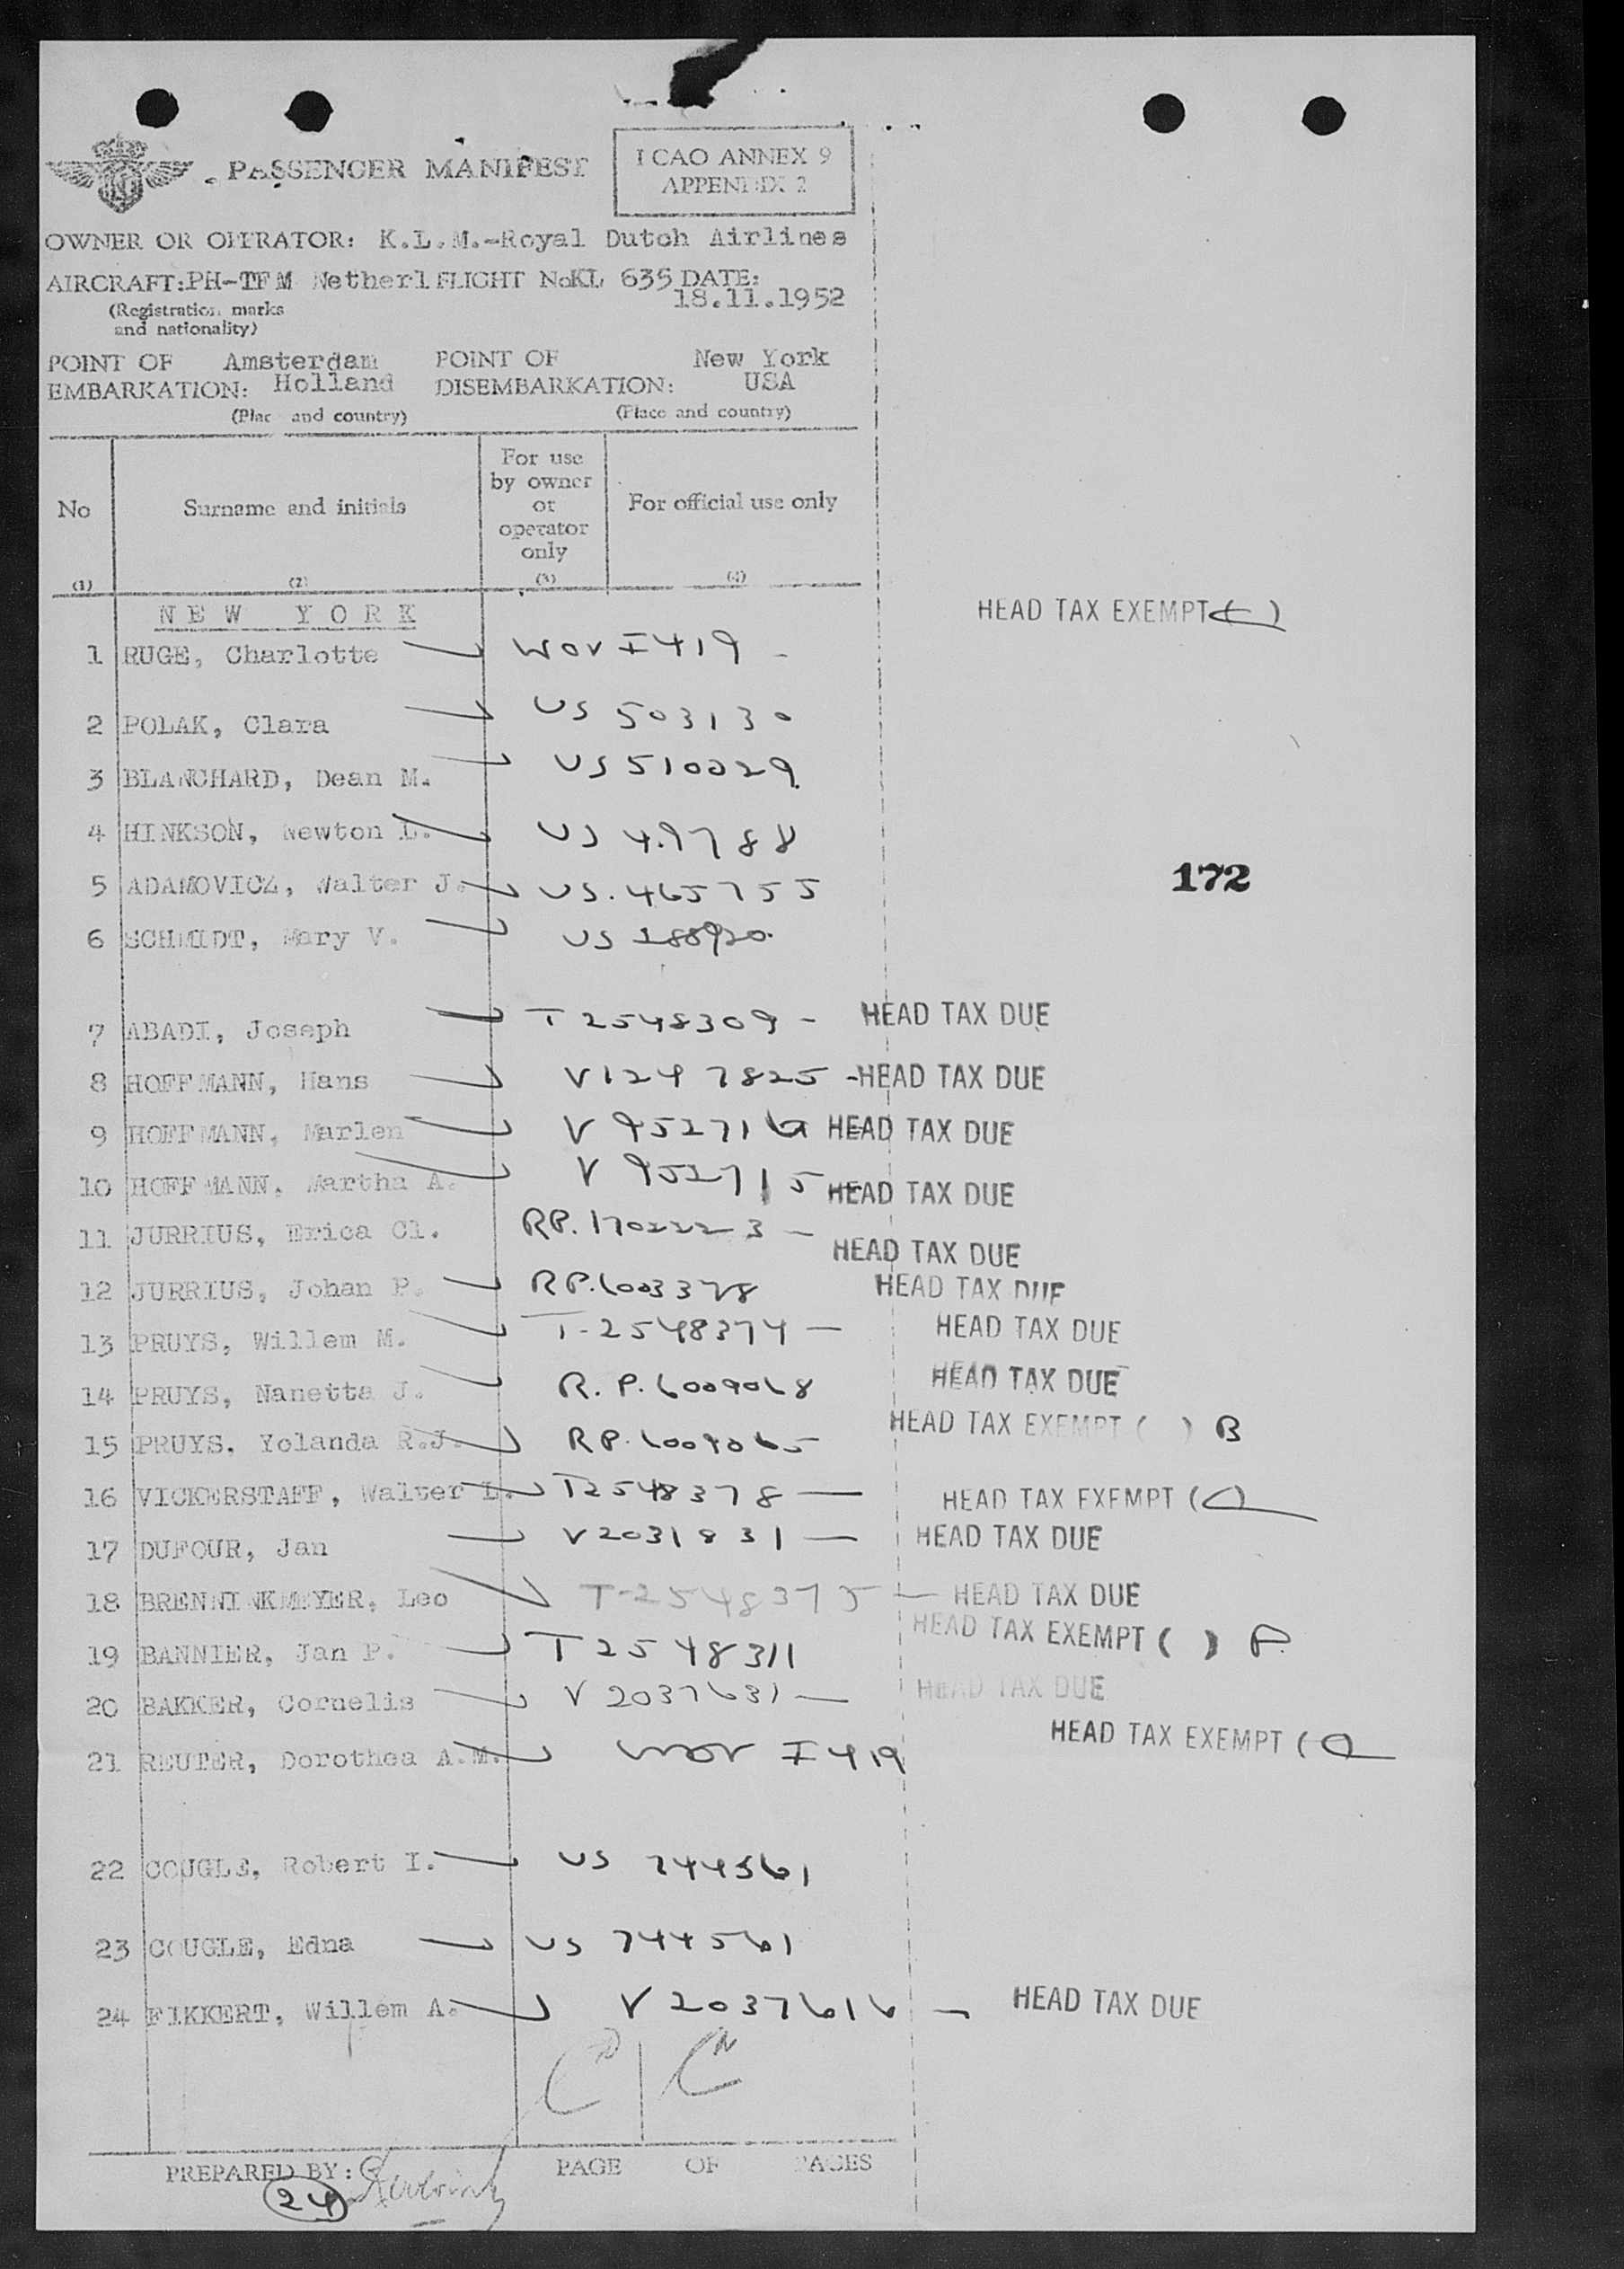 PASSENGER MANIFEST
ICAO ANNEX 9
APPENDIX 2
OWNER OR OPERATOR: K.L.M.-Royal Dutch Airlines
AIRCRAFT: PH-TFM Netherl FLIGHT No KL 635 DATE: 18.11.1952
(Registration marks
and nationality)
POINT OF EMBARKATION: Amsterdam Holland POINT OF DISEMBARKATION: New York USA
(Place and country) (Place and country)
No Surname and initials For use by owner or operator only For official use only
(1) (2) (3) (4)
NEW YORK HEAD TAX EXEMPT ( )
1 RUGE, Charlotte WOV I 419 -
2 POLAK, Clara US 503130
3 BLANCHARD, Dean M. US 510029
4 HINKSON, Newton L. US 49788
172
5 ADAMOVICZ, Walter J. US. 465755
6 SCHMIDT, Mary V. US 188920
7 ABADI, Joseph T 2548309 - HEAD TAX DUE
8 HOFFMANN, Hans V1247825 - HEAD TAX DUE
9 HOFFMANN, Marlen V 952716 HEAD TAX DUE
10 HOFFMANN, Martha A. V 952715 HEAD TAX DUE
11 JURRIUS, Erica Cl. RP. 1702223 — HEAD TAX DUE
12 JURRIUS, Johan P. RP. 6003378 HEAD TAX DUE
13 PRUYS, Willem M. T-2548374 — HEAD TAX DUE
14 PRUYS, Nanetta J. R. P. 6009068 HEAD TAX DUE
15 PRUYS, Yolanda R.J. RP. 6009065 HEAD TAX EXEMPT ( ) B
16 VICKERSTAFF, Walter L. T2548378 — HEAD TAX EXEMPT ( )
17 DUFOUR, Jan V2031831 — HEAD TAX DUE
18 BRENNINKMEYER, Leo T-2548375 — HEAD TAX DUE
19 BANNIER, Jan P. T 2548311 HEAD TAX EXEMPT ( )
20 BAKKER, Cornelis V 2037631 — HEAD TAX DUE
21 REUTER, Dorothea A.M. WOV I 419 HEAD TAX EXEMPT ( )
22 COUGLE, Robert I. US 744561
23 COUGLE, Edna US 744561
24 FIKKERT, Willem A. V 2037616 — HEAD TAX DUE
PREPARED BY: PAGE OF PAGES
24